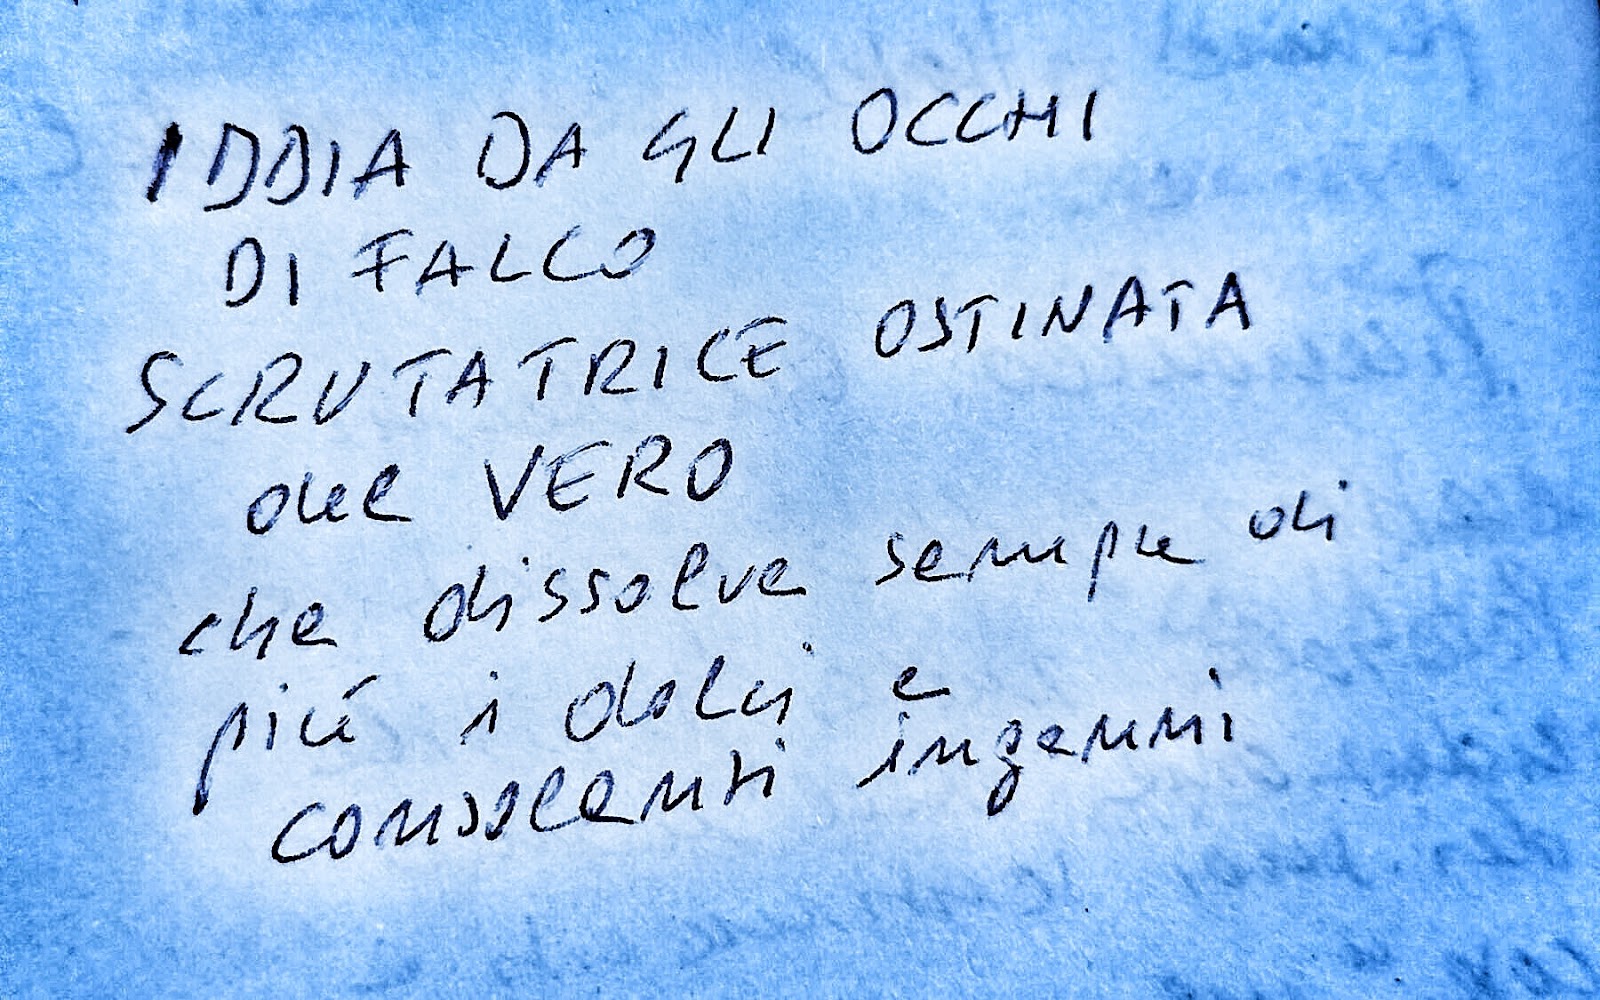 IDDIA DA GLI OCCHI
DI FALCO
SCRUTATRICE OSTINATA
del VERO
che dissolve sempre di
più i dolci e
consolanti inganni